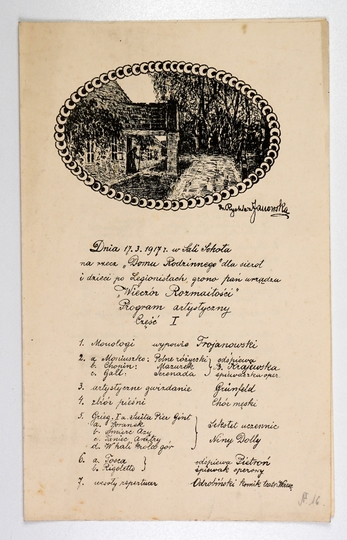 Br. Rychter Janowska
Dnia 17.3.1917 r. w Sali Sokoła
na rzecz „Domu Rodzinnego" dla sierot
i dzieci po Legionistach, grono pań urządza
„Wieczór Rozmaitości"
Program artystyczny
Część I
1. Monologi wypowie Trojanowski
2. a. Moniuszko: Polne różyczki } odśpiewa
b. Chopin: Mazurek } Krajewska
c. Gall: Serenada } śpiewaczka oper.
3. artystyczne gwizdanie Grünfeld
4. zbiór pieśni Chór męski
5. Grieg. I a. Suita Peer Gynt
a. Poranek } Sekstet uczennic
b. Śmierć Azy
c. Taniec Anitry } Niny Dolly
d. W hali króla gór
6. a. Tosca } odśpiewa Pietroń
b. Rigoletto } śpiewak operowy
7. wesoły repertuar Odrobiński